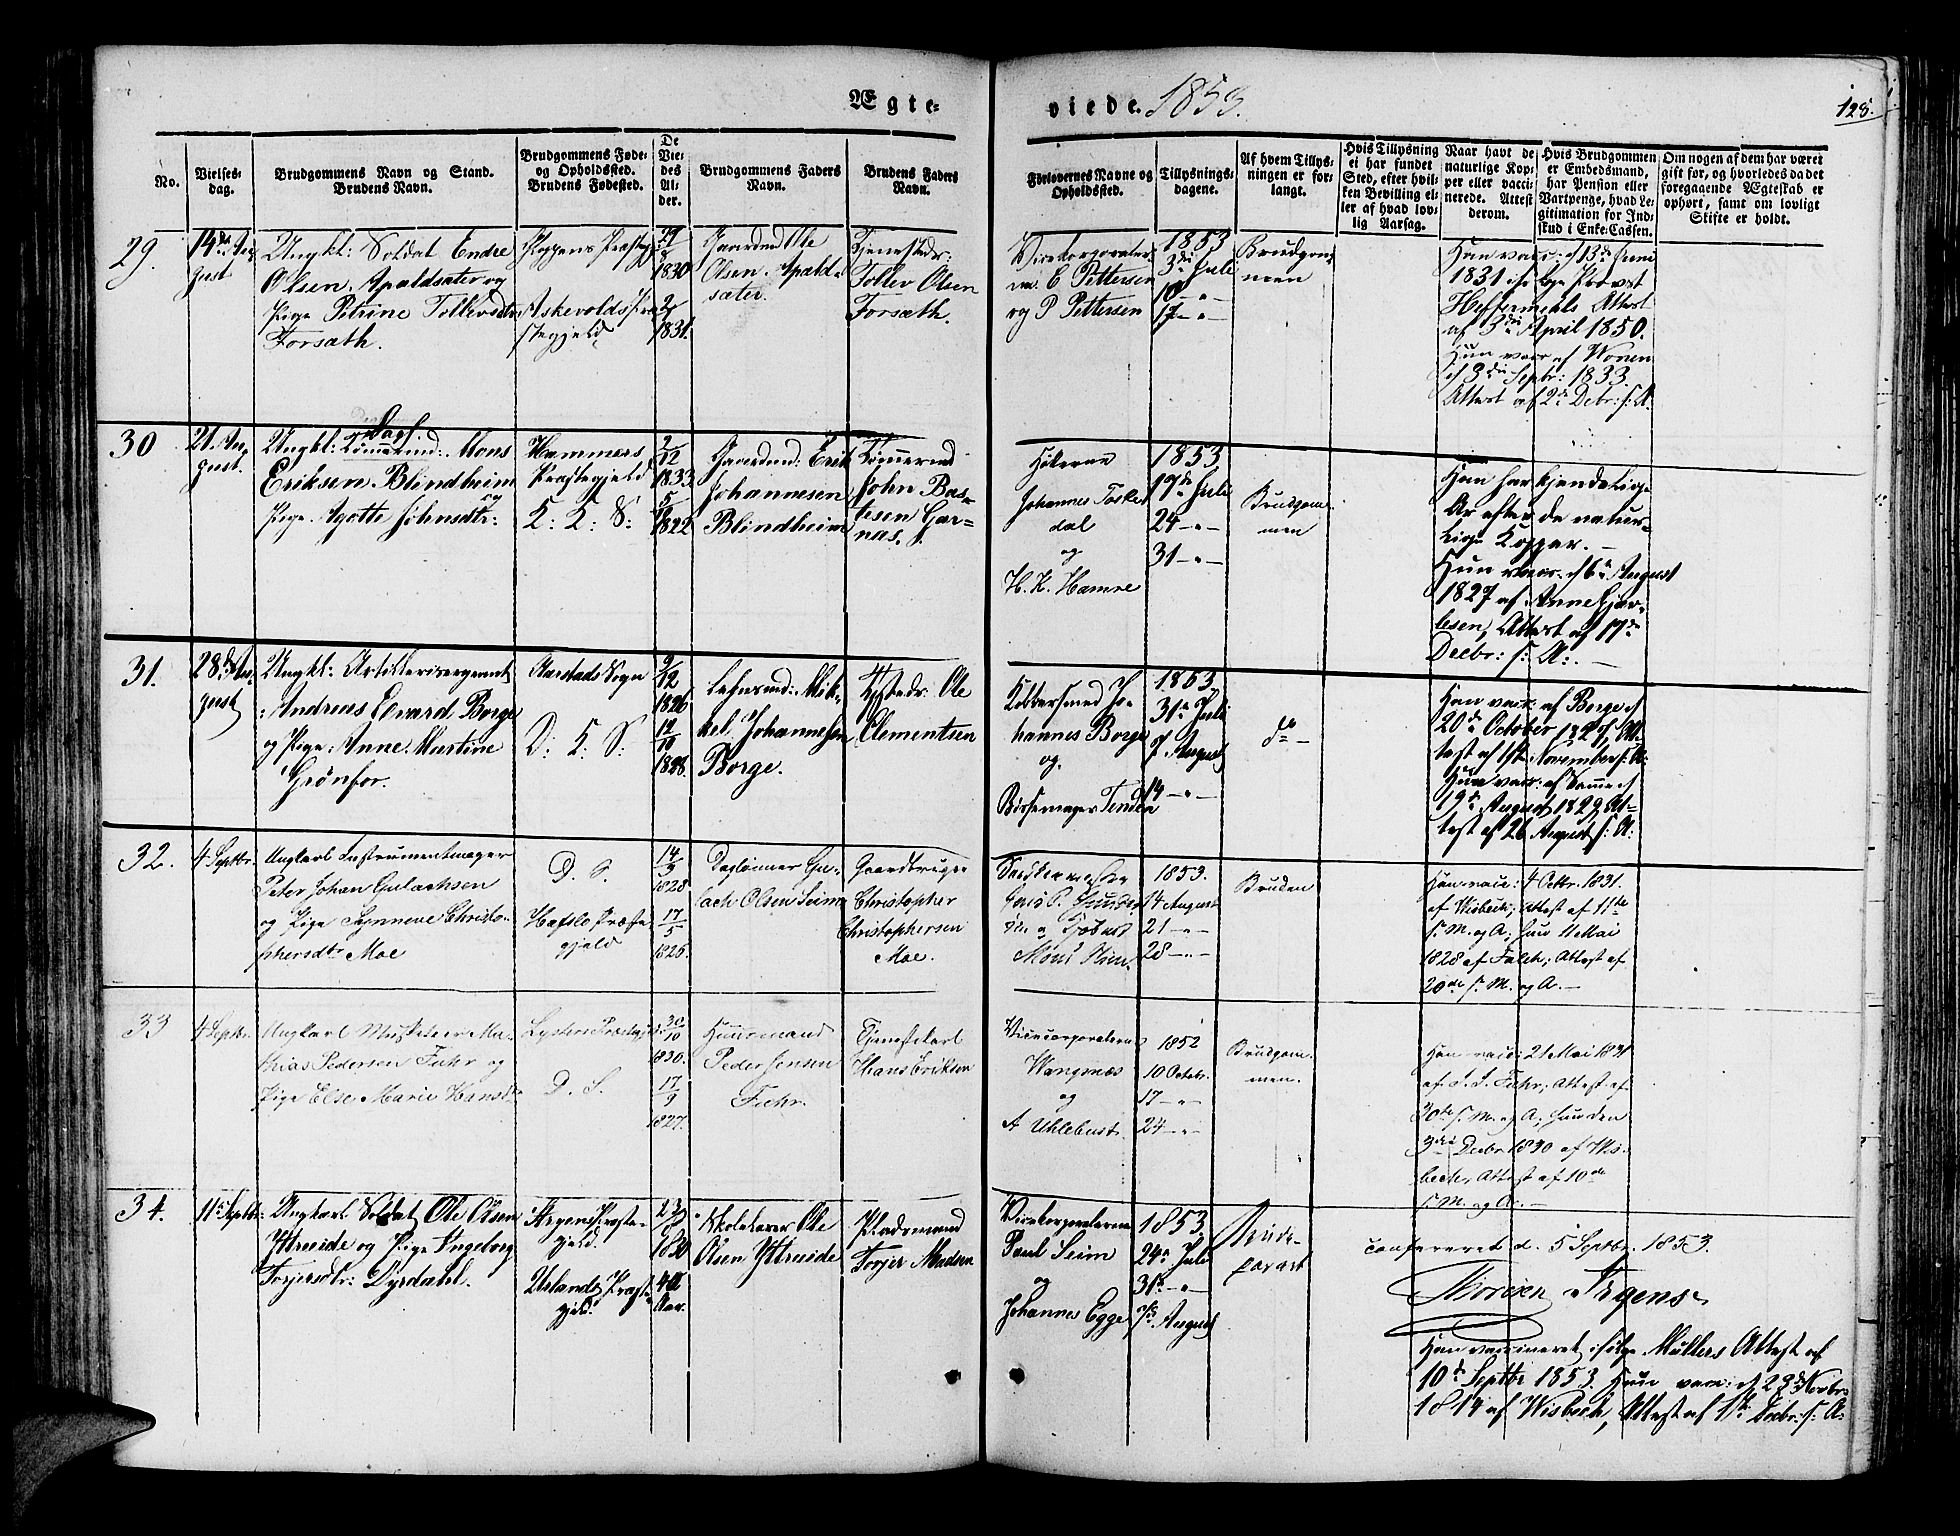 Ægte-
viede. 1853.
128.
No.
Vielses-
dag.
Brudgommens Navn og Stand.
Brudens Navn.
Brudgommens Føde-
og Opholdssted.
Brudens Fødested.
De
Vie-
des
Al-
der.
Brudgommens Faders
Navn.
Brudens Faders
Navn.
Forlovernes Navne og
Opholdssted.
Tillysnings-
dagene.
Af hvem Tillys-
ningen er for-
langt.
Hvis Tillysning
ei har fundet
Sted, efter hvil-
ken Bevilling el-
ler af hvad lov-
lig Aarsag.
Naar havt de
naturlige Kop-
per eller vacci-
nerede. Attest
derom.
Hvis Brudgommen
er Embedsmand,
har Pension eller
Vartpenge, hvad Le-
gitimation for Ind-
skud i Enke-Cassen.
Om nogen af dem har været
gift før, og hvorledes da det
foregaaende Ægteskab er
ophørt, samt om lovligt
Skifte er holdt.
29.
14de Au-
gust
Ungkl: Soldat Endre
Olsen Apaldsæter og
Pige Petrine Tollevsdtr
Forsæth.
Gloppens Præstegj:
Askevolds Præ-
stegjeld
1830
1831.
Gaardmd Ole
Olsen Apald-
sæter.
Tjenestedr:
Tollev Olsen
Forsæth.
Vicekorporaler-
ne E Pettersen
og P Pettersen
1853
3die Juli
10 — „ —
17 — „ —
Brudgom-
men
Han vacc: d 13de Juni
1831 ifølge Provst
Heffermehls Attest
af 3die April 1850.
Hun vacc af Wonen
d 3die Septbr: 1833.
Attest af 2de Debr: s: A.
30
21. Au-
gust.
Ungkl: Tømmermd: Mons
Eriksen Blindheim
og
Pige Agotte Johnsdtr:
Hammers
Præstegjeld
K: K: S:
2/12
1833.
1822
Gaardmd: Erik
Johannesen
Blindheim
Tømmermd
John Bas-
tesen Gar-
nas.
Høkerne
Johannes Toske
dal
og
H. K. Hamre
1853
17de Juli
24 — „ —
31 — „ —
Brudgom-
men
Han har kjendelige
Ar efter de natur-
lige Kopper. —
Hun vacc. d 6te August
1827 af Anne Gjer-
lesen, Attest af 17de
Decbr: s: A: —
31.
28de Au-
gust
Ungkl: Artillerisergeant
Andreas Edvard Borge
og Pige Anne Martine
Grønfor.
Aarstads Sogn
D: K: S:
9/12
1826
12/10
1828.
Lehnsmd: Mik-
kel Johannesen
Borge.
Tjstedr. Ole
Clementsen
Kobbersmed Jo-
hannes Borge
og
Bøssemager Tenden
1853
31te Juli
7 August
14 — „ —
do —
Han vacc. af Borge d
20de October 1827, At-
test af 1ste November s: A:
Hun vacc: af Samme d
19de August 1829 At-
test af 26 August s: A:
32.
4 Septbr.
Ungkarl Instrumentmager
Peter Johan Gulachsen
og Pige Synneve Christo-
phersdtr Moe
D. S.
Hafslo Præste
gjeld
14/3
1828
17/5
1825.
Daglønner Gu-
lach Olsen Seim
Gaardbruger
Christopher
Christophersen
Moe.
1853.
14 August
21 — „ —
28 — „ —
Bruden
Han vacc: 4 Octbr. 1831.
af Wisbech; Attest af 11te
s. M. og A; hun 11 Mai
1828 af Falch; Attest af
20de s. M. og A. —
33
4 Septbr.
Ungkarl Musketeer Ma-
thias Pedersen Fuhr og
Pige Else Marie Hansdr
Lysters Præstegjeld
D. S.
30/10
1830.
17/9
1827.
Huusmand
Peder Jensen
Fuhr.
Tjenestekarl
Hans Eriksen
Vicecorporalerne
Wangsnæs
og
A Uhlebust.
1852
10 Octobr.
17 — „ —
24 — „ —
Brudgom-
men.
Han vacc: 21 Mai 1831
af J. J. Fuhr; Attest af
30te s. M. og A; hun den
3die Decbr 1830 af Wis-
bech, Attest af 10de
s. M. og A. —
34.
11te Septbr:
Ungkarl Soldat Ole Olsen
Yttreide og Pige Ingeborg
Torjersdtr: Dyrdahl.
Urlands Præste-
gjeld
23/8
1820
40
Aar.
Skolelærer Ole
Olsen Yttreide
Pladsmand
Torjer Madsen
Vicekorporalerne
Paul Seim
og
Johannes Egge
1853
24de Juli
31te — „ —
7de August
Brude-
parret
confereret d. 5 Septbr. 1853.
Han vaccineret ifølge Müllers Attest af
10de Septbr 1853. Hun vacc: d 23de Novbr
1814 af Wisbech, Attest af 1ste Decbr: s: A: